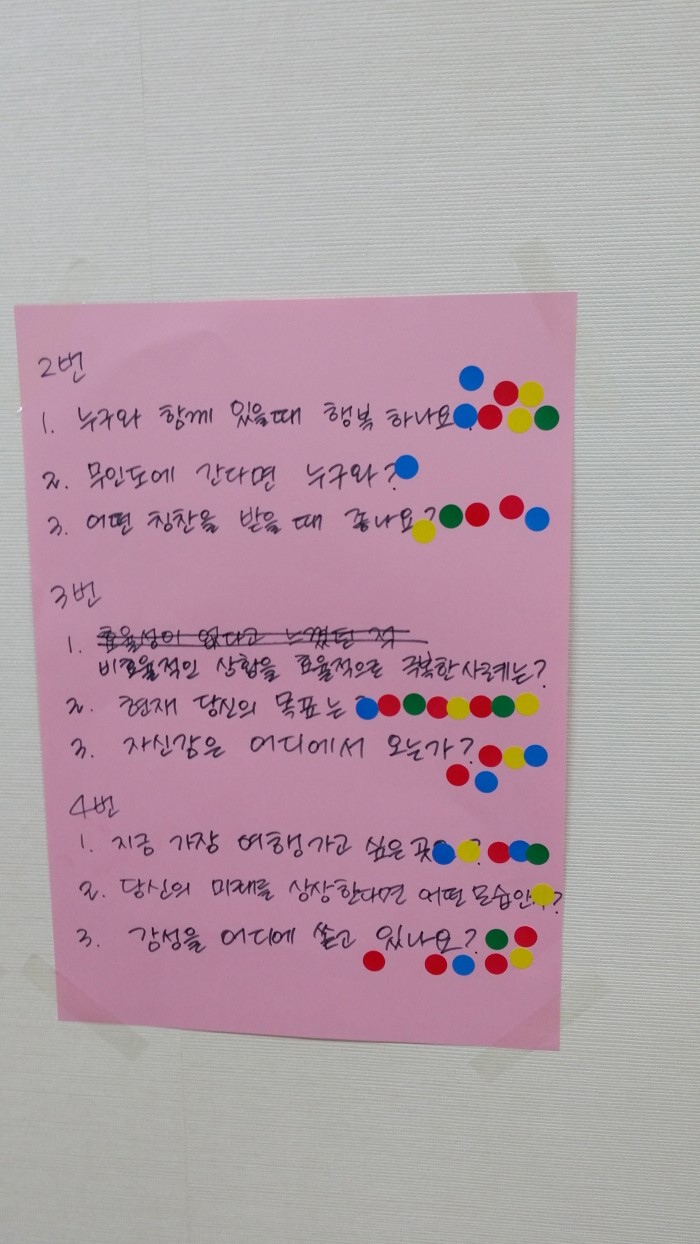 2번
1. 누구와 함께 있을때 행복 하나요?
2. 무인도에 간다면 누구와?
3. 어떤 칭찬을 받을 때 좋나요?
3번
1. 효율성이 없다고 느꼈던 적
비효율적인 상황을 효율적으로 극복한 사례는?
2. 현재 당신의 목표는?
3. 자신감은 어디에서 오는가?
4번
1. 지금 가장 여행가고 싶은 곳 ?
2. 당신의 미래를 상상한다면 어떤 모습인 ?
3. 감성을 어디에 쏟고 있나요?